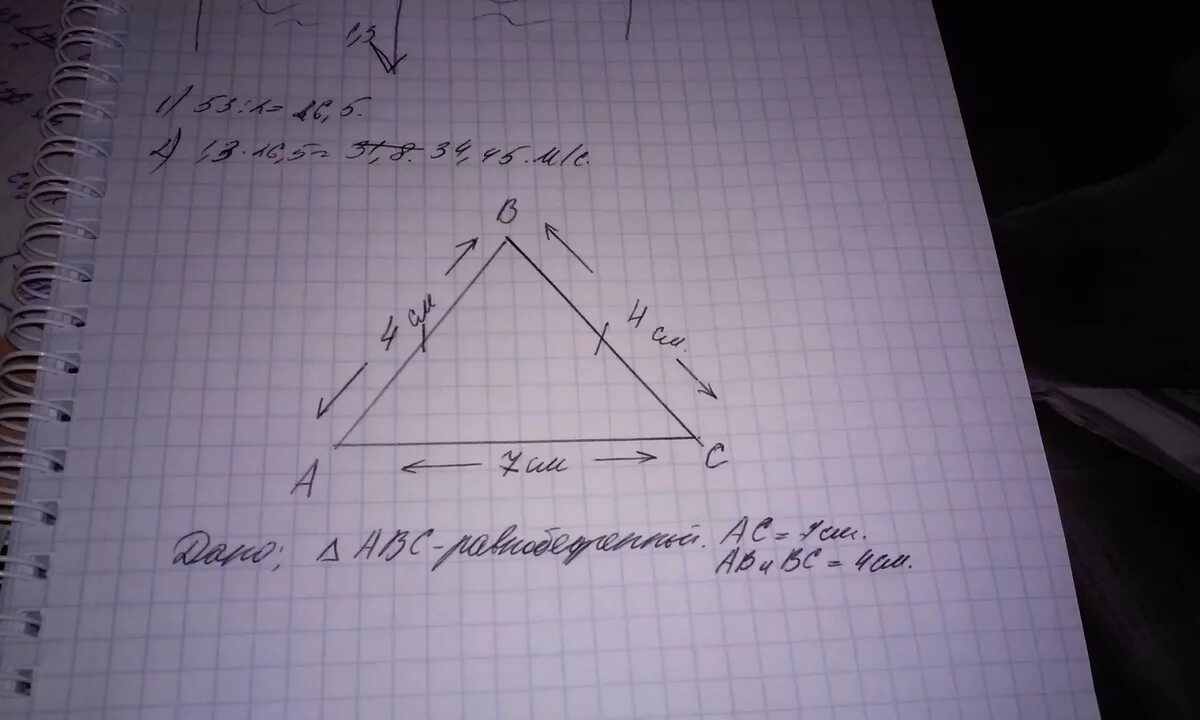 1,3
1) 53:2= 26,5.
2) 1,3·26,5= 31,8. 34,45. м/с.
B
4 см
4 см.
A
7 см
C
Дано; △ ABC-равнобедренный. AC = 7 см.
AB и BC = 4 см.